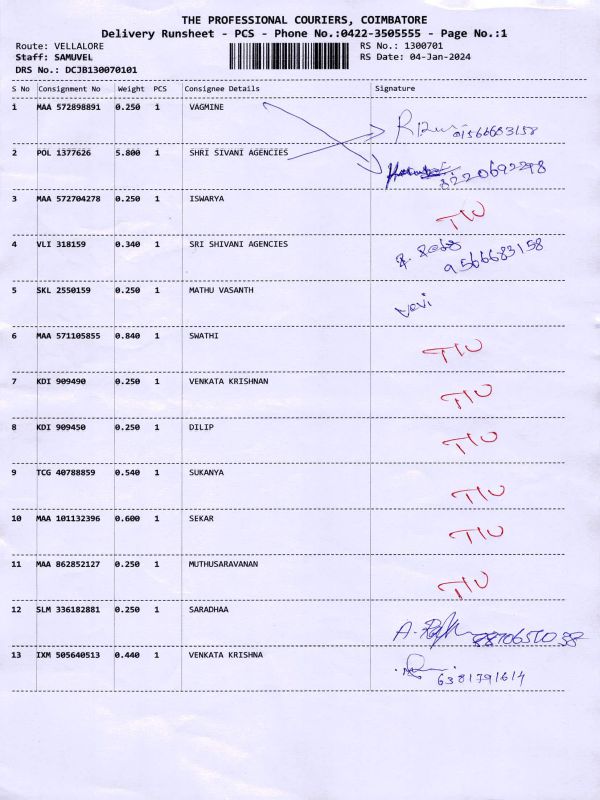 THE PROFESSIONAL COURIERS, COIMBATORE
Delivery Runsheet - PCS - Phone No.:0422-3505555 - Page No.:1
Route: VELLALORE RS No.: 1300701
Staff: SAMUVEL RS Date: 04-Jan-2024
DRS No.: DCJB130070101
S No Consignment No Weight PCS Consignee Details Signature
1 MAA 572898891 0.250 1 VAGMINE
9566683158
2 POL 1377626 5.800 1 SHRI SIVANI AGENCIES
8220692298
3 MAA 572704278 0.250 1 ISWARYA
4 VLI 318159 0.340 1 SRI SHIVANI AGENCIES
9566683158
5 SKL 2550159 0.250 1 MATHU VASANTH
6 MAA 571105855 0.840 1 SWATHI
7 KDI 909490 0.250 1 VENKATA KRISHNAN
8 KDI 909450 0.250 1 DILIP
9 TCG 40788859 0.540 1 SUKANYA
10 MAA 101132396 0.600 1 SEKAR
11 MAA 862852127 0.250 1 MUTHUSARAVANAN
12 SLM 336182881 0.250 1 SARADHAA
13 IXM 505640513 0.440 1 VENKATA KRISHNA
6381791614